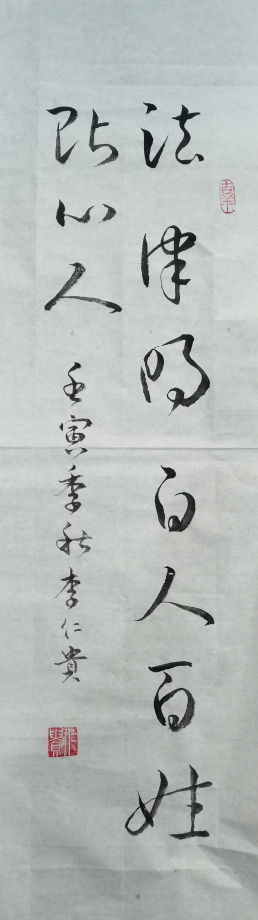 法律明白人百姓
貼心人
壬寅季秋李仁貴